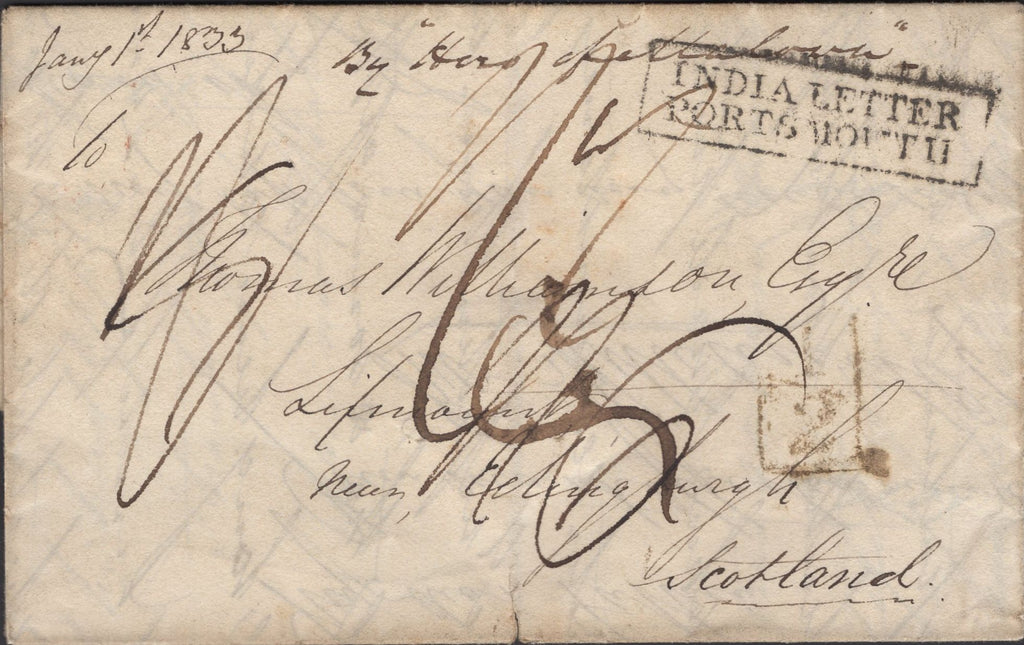 Jany 1st 1833
By "Hero of Malown"
INDIA LETTER
PORTSMOUTH
To
Thomas Williamson Esqre
Lixmount
near Edinburgh
Scotland.
1/2